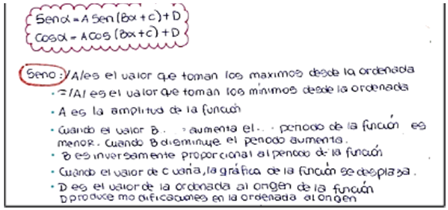 Senα = A Sen (Bα + C) + D
Cosα = A Cos (Bα + C) + D
Seno: /A/ es el valor que toman los maximos desde la ordenada
· =/A/ es el valor que toman los mínimos desde la ordenada
· A es la amplitud de la función
· Cuando el valor B . . aumenta el . . periodo de la función es
menor. Cuando B disminuye el periodo aumenta.
· B es inversamente proporcional al periodo de la función
· Cuando el valor de C varia, la gráfica de la función se desplaza.
· D es el valor de la ordenada al origen de la función
D produce modificaciones en la ordenada al origen